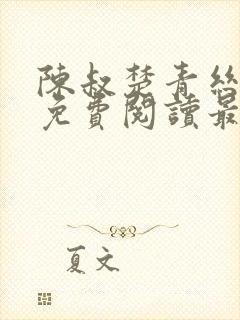 陳叔楚青絲
免費閱讀最
夏文